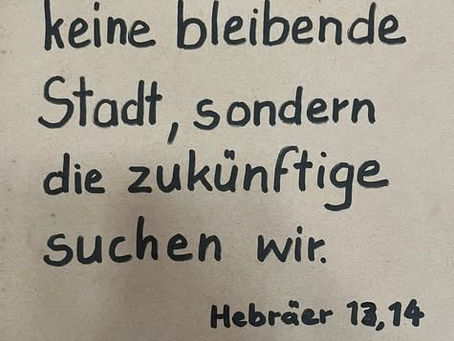 keine bleibende
Stadt, sondern
die zukünftige
suchen wir.
Hebräer 13,14